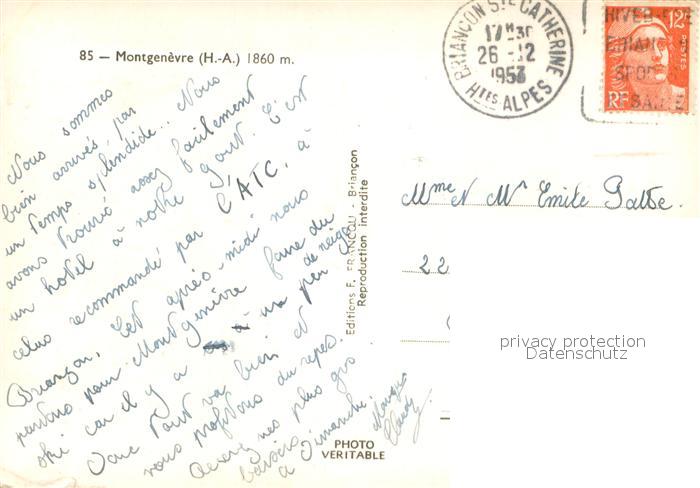 85 — Montgenèvre (H.-A.) 1860 m.
Nous sommes
bien arrivés, par
un temps splendide. Nous
avons trouvé assez facilement
un hotel à notre gout. C'est
celui recommandé par L'ATC. à
Briançon. Cet après-midi nous
partons pour Montgenèvre faire du
ski car il y a un peu de neige
Donc tout va bien et
nous profitons du repos.
Recevez nos plus gros
baisers
à Dimanche.
PHOTO
VERITABLE
Editions F. FRANCOU - Briançon
Reproduction interdite
BRIANÇON STE CATHERINE
17H30
26-12
1953
HTES ALPES
HIVER-ETE
BRIANÇON
SPORTS
SANTE
12F
POSTES
RF
Mme et Mr Emile
22
privacy protection
Datenschutz